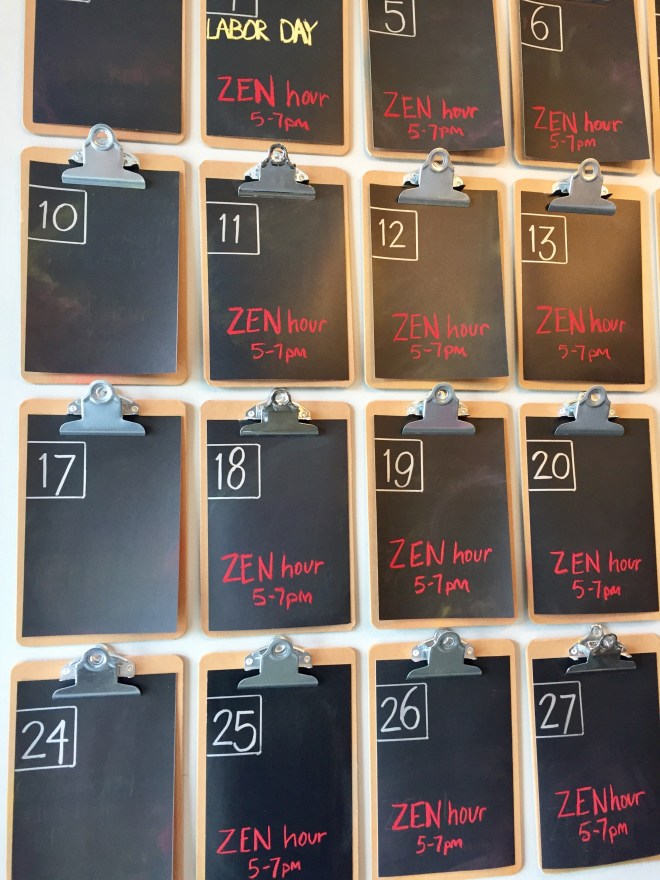 LABOR DAY
ZEN hour
5-7pm
5
ZEN hour
5-7pm
6
ZEN hour
5-7pm
10
11
ZEN hour
5-7pm
12
ZEN hour
5-7pm
13
ZEN hour
5-7pm
17
18
ZEN hour
5-7pm
19
ZEN hour
5-7pm
20
ZEN hour
5-7pm
24
25
ZEN hour
5-7pm
26
ZEN hour
5-7pm
27
ZEN hour
5-7pm